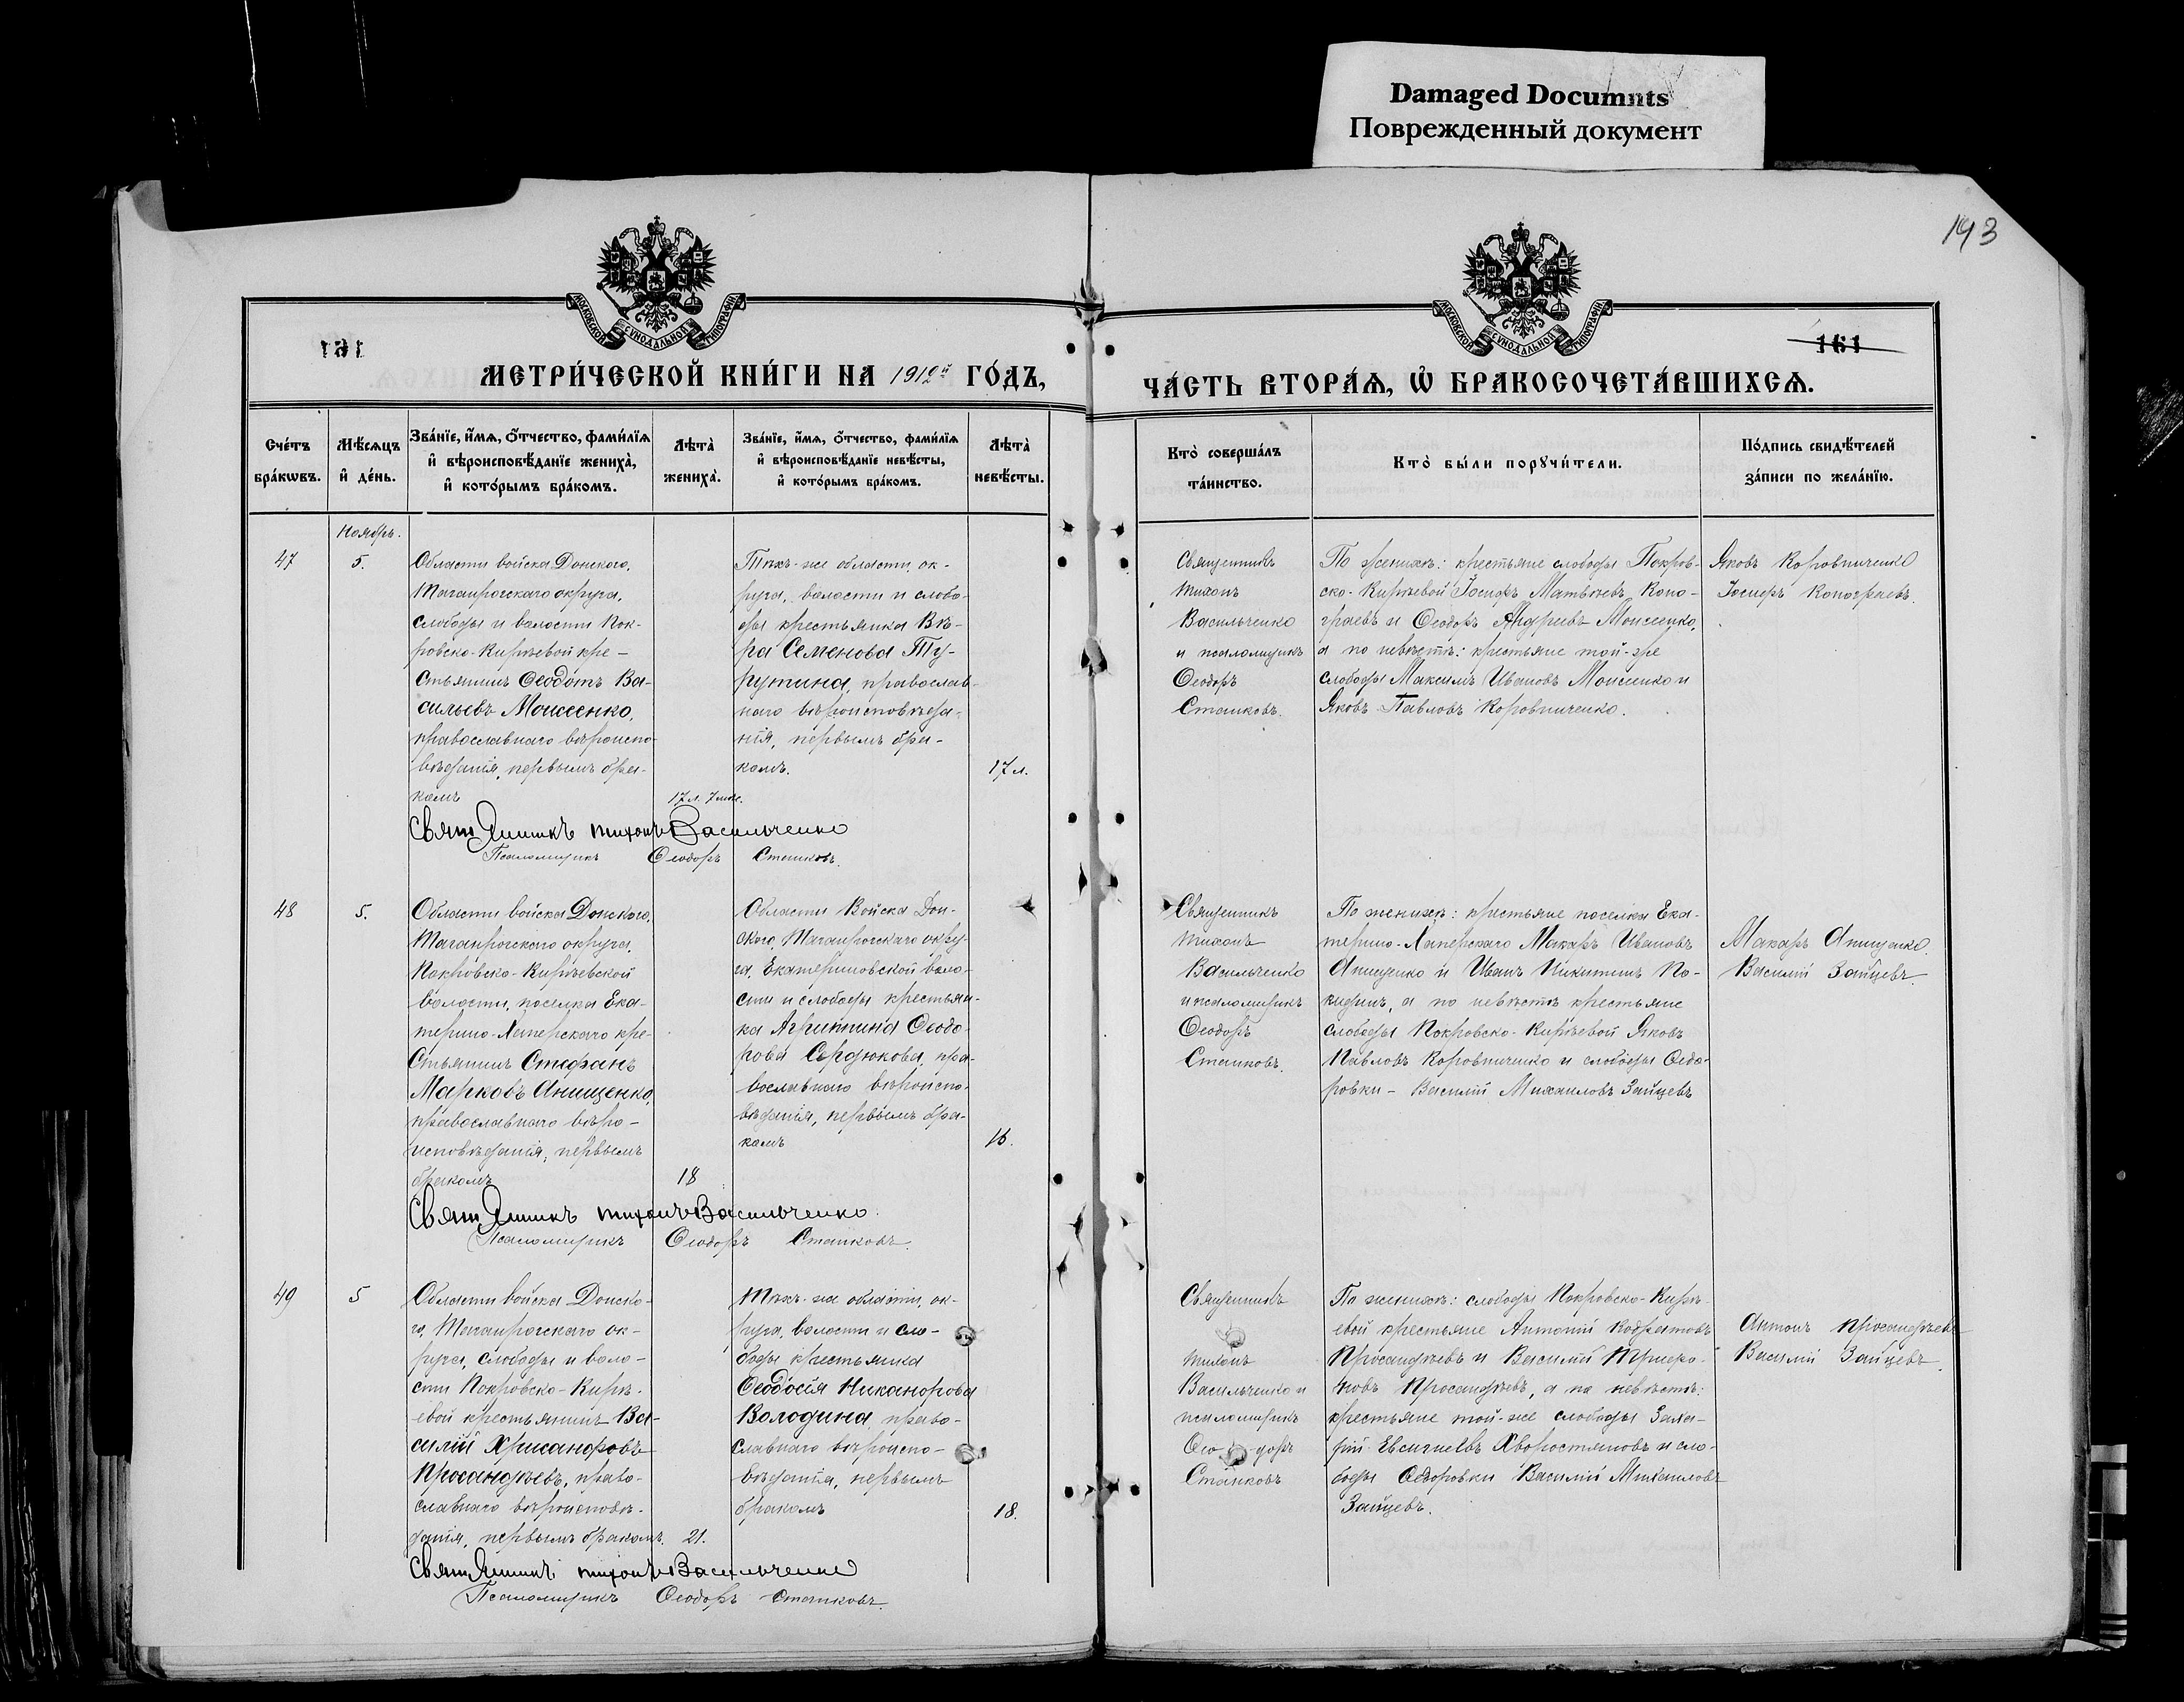 Damaged Documnts
Поврежденный документ
193
МОСКОВСКОЙ СѴНОДАЛЬНОЙ ТИПОГРАФІИ
МОСКОВСКОЙ СѴНОДАЛЬНОЙ ТИПОГРАФІИ
161
161
МЕТРИ́ЧЕСКОЙ КНИ́ГИ НА 1912й ГО́ДЪ,
ЧА́СТЬ ВТОРА́Ѧ, Ѡ҆ БРАКОСОЧЕТА́ВШИХСѦ.
Сче́тъ бра́кѡвъ.
Мѣ́сѧцъ и҆ де́нь.
Зва́нїе, и҆́мѧ, ѻ҆́тчество, фами́лїѧ и҆ вѣроисповѣ́данїе жениха̀, и҆ кото́рымъ бра́комъ.
Лѣта̀ жениха̀.
Зва́нїе, и҆́мѧ, ѻ҆́тчество, фами́лїѧ и҆ вѣроисповѣ́данїе невѣ́сты, и҆ кото́рымъ бра́комъ.
Лѣта̀ невѣ́сты.
Кто̀ соверша́лъ та́инство.
Кто̀ бы́ли порꙋчи́тели.
По́дпись свидѣ́телей за́писи по жела́нїю.
Ноябрь.
47
5.
Области войска Донского,
Таганрогскаго округа,
слободы и волости Пок-
ровско-Кирѣевой кре-
стьянинъ Ѳеодотъ Ва-
сильевъ Моисеенко,
православнаго вѣроиспо-
вѣданія, первымъ бра-
комъ
17 л. 7 мѣс.
Тѣхъ-же области, ок-
руга, волости и слобо-
ды крестьянка Вѣ-
ра Семенова Ту-
рутина, православ-
наго вѣроисповѣда-
нія, первымъ бра-
комъ.
17 л.
Священникъ
Тихонъ
Васильченко
и псаломщикъ
Ѳеодоръ
Станковъ.
По женихѣ: крестьяне слободы Покров-
ско-Кирѣевой Іосифъ Матвѣевъ Коно-
граевъ и Ѳеодоръ Андреевъ Моисеенко,
а по невѣстѣ: крестьяне той-же
слободы Максимъ Ивановъ Моисеенко и
Яковъ Павловъ Коровниченко.
Яковъ Коровниченко
Іосифъ Конограевъ.
Священникъ Тихонъ Васильченко
Псаломщикъ Ѳеодоръ Станковъ.
48
5.
Области войска Донского,
Таганрогскаго округа,
Покровско-Кирѣевской
волости, поселка Ека-
терино-Хаперскаго кре-
стьянинъ Стефанъ
Марковъ Анищенко,
православнаго вѣро-
исповѣданія, первымъ
бракомъ
18
Области Войска Дон-
ского, Таганрогскаго окру-
га, Екатериновской воло-
сти и слободы крестьян-
ка Агриппина Ѳеодо-
рова Сердюкова, пра-
вославнаго вѣроиспо-
вѣданія, первымъ бра-
комъ
16.
Священникъ
Тихонъ
Васильченко
и псаломщикъ
Ѳеодоръ
Станковъ.
По женихѣ: крестьяне поселка Ека-
терино-Хаперскаго Макаръ Ивановъ
Анищенко и Иванъ Никитинъ По-
кидинъ, а по невѣстѣ крестьяне
слободы Покровско-Кирѣевой Яковъ
Павловъ Коровниченко и слободы Ѳедо-
ровки - Василій Михаиловъ Зайцевъ
Макаръ Анищенко.
Василій Зайцевъ.
Священникъ Тихонъ Васильченко.
Псаломщикъ Ѳеодоръ Станковъ.
49
5
Области войска Донско-
го, Таганрогскаго ок-
руга, слободы и воло-
сти Покровско-Кирѣ-
евой крестьянинъ Ва-
силій Хрисанфовъ
Просандѣевъ, право-
славнаго вѣроисповѣ-
данія, первымъ бракомъ.
21.
Тѣхъ-же области, ок-
руга, волости и сло-
боды крестьянка
Ѳеодосія Никанорова
Володина право-
славнаго вѣроиспо-
вѣданія, первымъ
бракомъ
18.
Священникъ
Тихонъ
Васильченко и
псаломщикъ
Ѳеодоръ
Станковъ
По женихѣ: слободы Покровско-Кирѣ-
евой крестьяне Антоній Кодратовъ
Просандѣевъ и Василій Трифо-
новъ Просандѣевъ, а по невѣстѣ:
крестьяне той-же слободы Заха-
рій Евсигнеевъ Хворостяновъ и сло-
боды Ѳедоровки Василій Михаиловъ
Зайцевъ.
Антонъ Просандѣевъ
Василій Зайцевъ.
Священникъ Тихонъ Васильченко
Псаломщикъ Ѳеодоръ Станковъ.